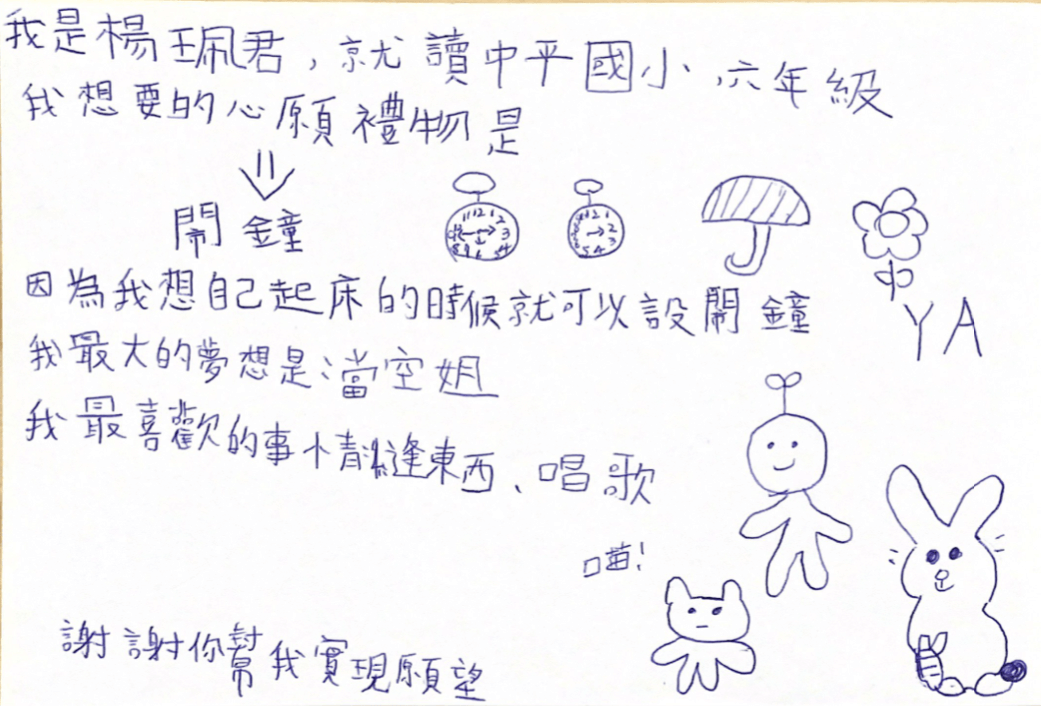 我是楊珮君，就讀中平國小，六年級
我想要的心願禮物是
鬧鐘
因為我想自己起床的時候就可以設鬧鐘
YA
我最大的夢想是當空姐
我最喜歡的事情縫東西、唱歌
喵!
謝謝你幫我實現願望